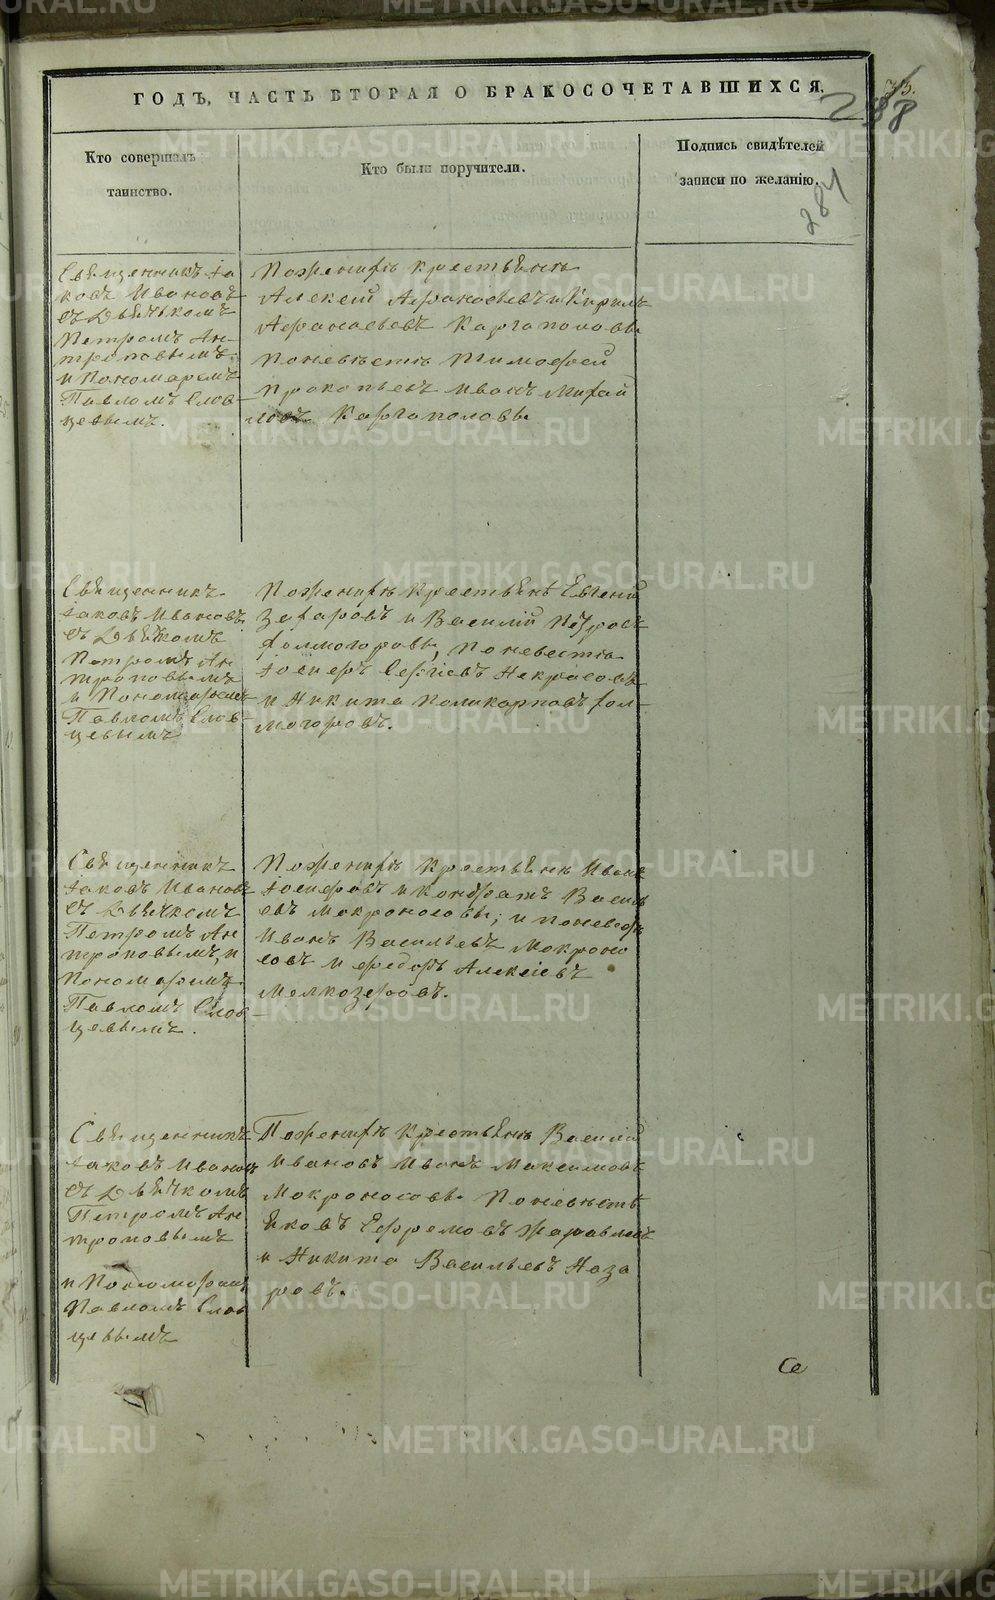 ГОДЪ, ЧАСТЬ ВТОРАЯ О БРАКОСОЧЕТАВШИХСЯ.
288
284
Кто совершалъ
таинство.
Кто были поручители.
Подпись свидѣтелей
записи по желанію.
Священникъ Іа
ковъ Ивановъ
съ Дьячкомъ
Петромъ Ан-
троповымъ
и Пономаремъ
Павломъ Слов-
цевымъ.
По женихѣ крестьяне
Алексѣй Афанасьевъ и Кирилъ
Афанасьевъ Каргаполовы
По невѣстѣ Тимофей
Прокопьевъ Иванъ Михай
ловъ Каргаполовы
Священникъ
Іаковъ Ивановъ
съ Дьячкомъ
Петромъ Ан
троповымъ
и Пономаремъ
Павломъ Слов-
цевымъ
По женихѣ крестьянѣ Евгеній
Захаровъ и Василій Петровъ
Холмогоровы, по невестѣ
Іосифъ Сергіевъ Некрасовъ
и Никита Поликарповъ Хол-
могоровъ.
Священникъ
Іаковъ Ивановъ
съ Дьячкомъ
Петромъ Ан
троповымъ, и
Пономаремъ
Павломъ Слов-
цевымъ.
По женихѣ крестьяне Иванъ
Іосифовъ и Кондратъ Василь
евъ Мокроносовы; и по невестѣ
Иванъ Васильевъ Мокроно
совъ и Федоръ Алексіевъ
Мелкозеровъ.
Священникъ
Іаковъ Ивановъ
съ Дьячкомъ
Петромъ Ан
троповымъ
и Пономаремъ
Павломъ Слов
цевымъ
По женихѣ крестьяне Василій
Ивановъ Иванъ Максимовъ
Мокроносовы. По невѣстѣ
Яковъ Ефремовъ Журавлевъ
и Никита Васильевъ Наза
ровъ.
Се
METRIKI.GASO-URAL.RU